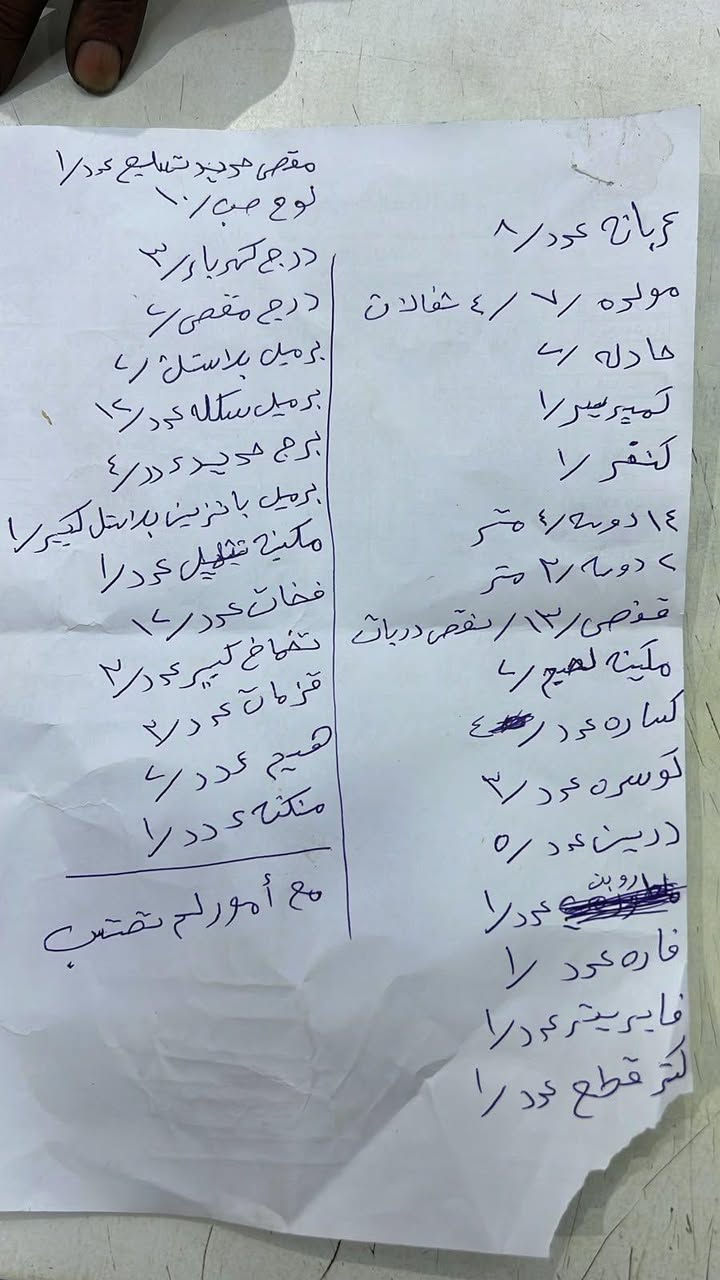 عربانه عدد/ ٨
مولده /٧ /٤ شغالات
حادله /٢
كمبريسر/١
كنغر /١
١٤ دوسه/٤ متر
٢ دوسه/٣ متر
قفص /١٣/
مكينه لحيم /٢
كساره عدد / ٤
كوسره عدد /٣
درين عدد /٥
روبن عدد /١
فاره عدد /١
فايبريتر عدد/١
كتر قطع عدد /١
مقص حديد تسليح عدد/١
لوح صب /١٠
درج كهرباء/٣
درج مقص /٢
برميل بلاستك /٢
برميل سكله عدد /١٢
برج حديد عدد /٤
برميل بانزين بلاستل كبير/١
مكينه عدد /١
فخات عدد /١٢
تخماخ كبير عدد /٣
قزمات عدد /٣
هيم عدد /٢
منكنه عدد /١
مع أمور لم تكتب